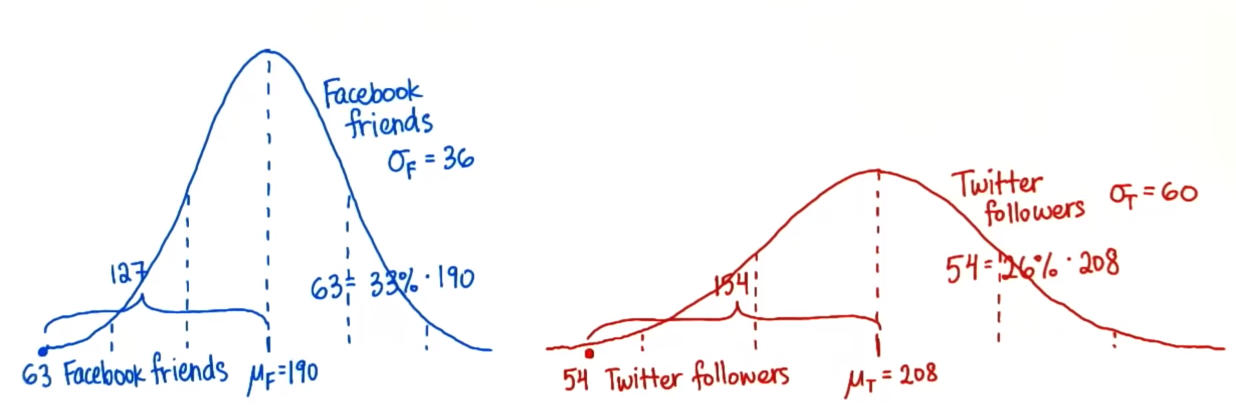 Facebook
friends
σF = 36
127
63 = 33% · 190
63 Facebook friends
μF = 190
Twitter
followers
σT = 60
54 = 26% · 208
154
54 Twitter followers
μT = 208